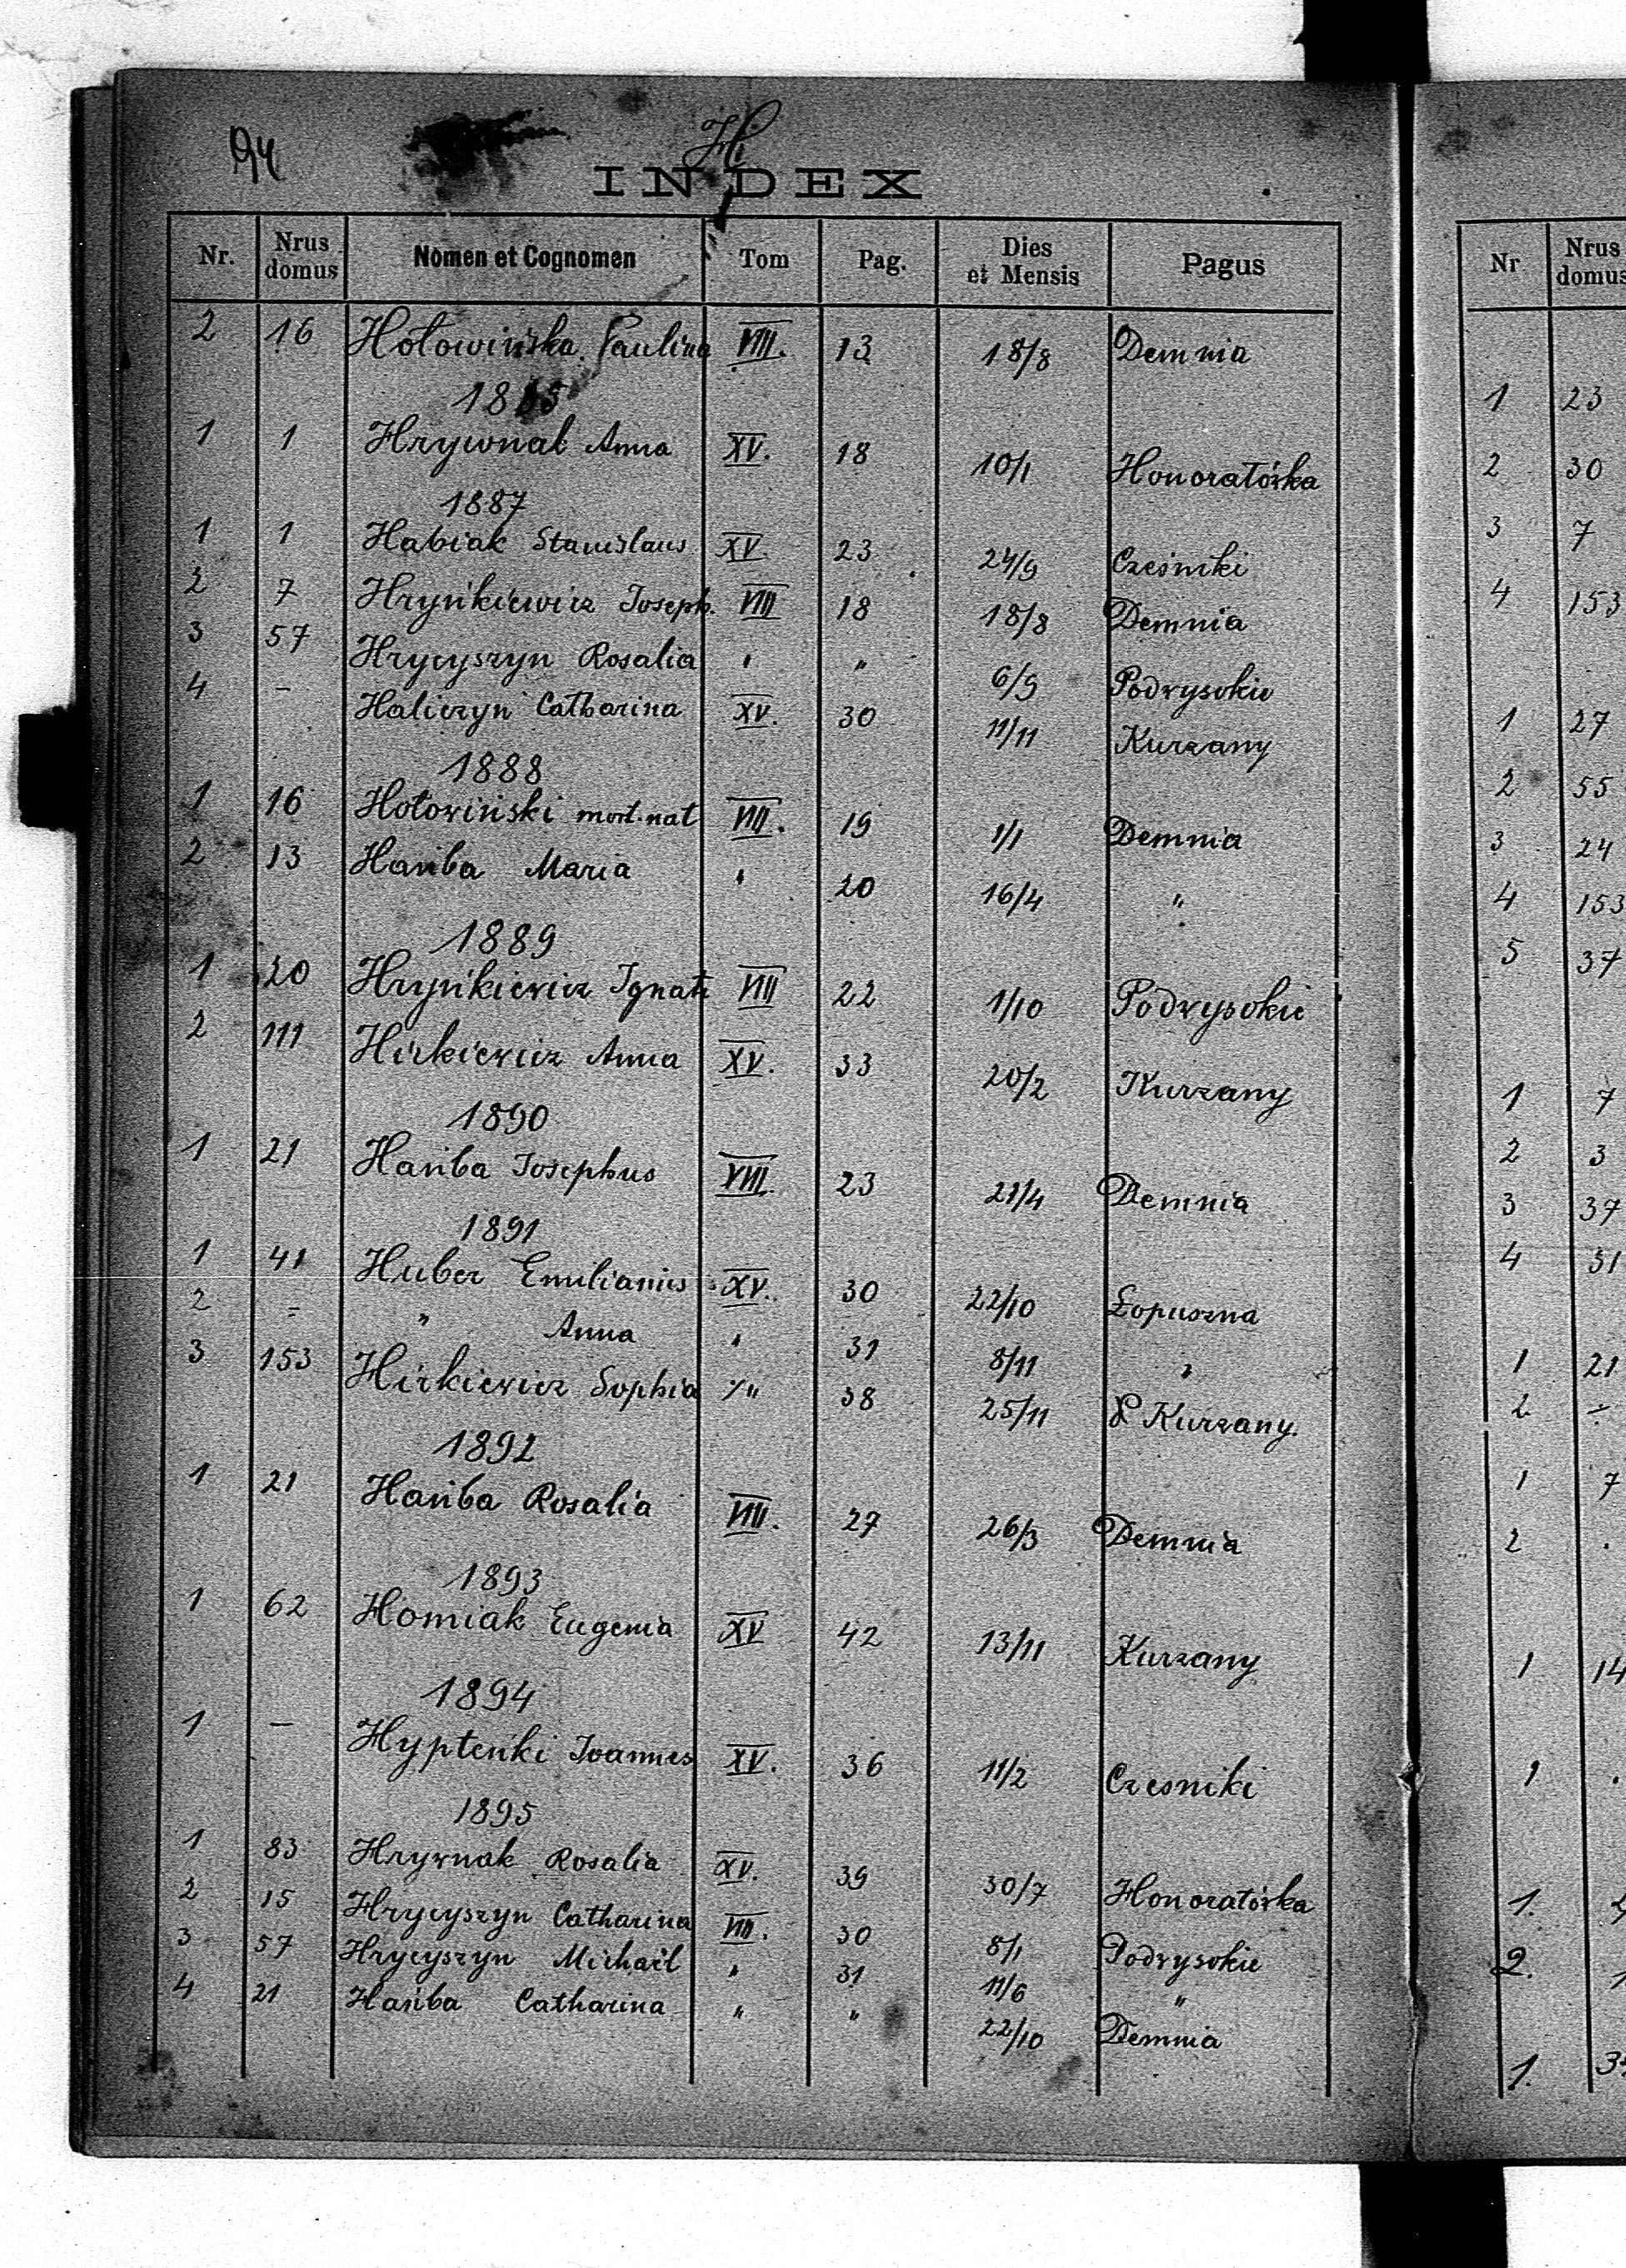 94 H
INDEX
Nr. Nrus domus Nomen et Cognomen Tom Pag. Dies et Mensis Pagus
2 16 Hołowińska Paulina VIII. 13 18/8 Demnia
1885
1 1 Hrywnak Anna XV. 18 10/1 Honoratówka
1887
1 1 Habiak Stanislaus XV. 23 24/9 Cześniki
2 7 Hryńkiewicz Joseph. VIII 18 18/8 Demnia
3 57 Hrycyszyn Rosalia " " 6/9 Podwysokie
4 - Haliczyn Catharina XV. 30 11/11 Kurzany
1888
1 16 Hołowiński mort. nat VIII. 19 1/1 Demnia
2 13 Hańba Maria " 20 16/4 "
1889
1 20 Hryńkiewicz Ignatz VIII 22 1/10 Podwysokie
2 111 Hirkiewicz Anna XV. 33 20/2 Kurzany
1890
1 21 Hańba Josephus VIII. 23 21/4 Demnia
1891
1 41 Huber Emilianus XV. 30 22/10 Łopuszna
2 - " Anna " 31 8/11 "
3 153 Hirkiewicz Sophia " 38 25/11 Kurzany.
1892
1 21 Hańba Rosalia VIII. 27 26/3 Demnia
1893
1 62 Homiak Eugenia XV 42 13/11 Kurzany
1894
1 - Hypteńki Joannes XV. 36 11/2 Czesniki
1895
1 83 Hrywnak Rosalia XV. 39 30/7 Honoratówka
2 15 Hrycyszyn Catharina VIII. 30 8/1 Podwysokie
3 57 Hrycyszyn Michaël " 31 11/6 "
4 21 Hańba Catharina " " 22/10 Demnia
Nr Nrus domus
1 23
2 30
3 7
4 153
1 27
2 55
3 24
4 153
5 37
1 7
2 3
3 37
4 31
1 21
2 -
1 7
2 .
1 14
1 .
1.
2.
1.